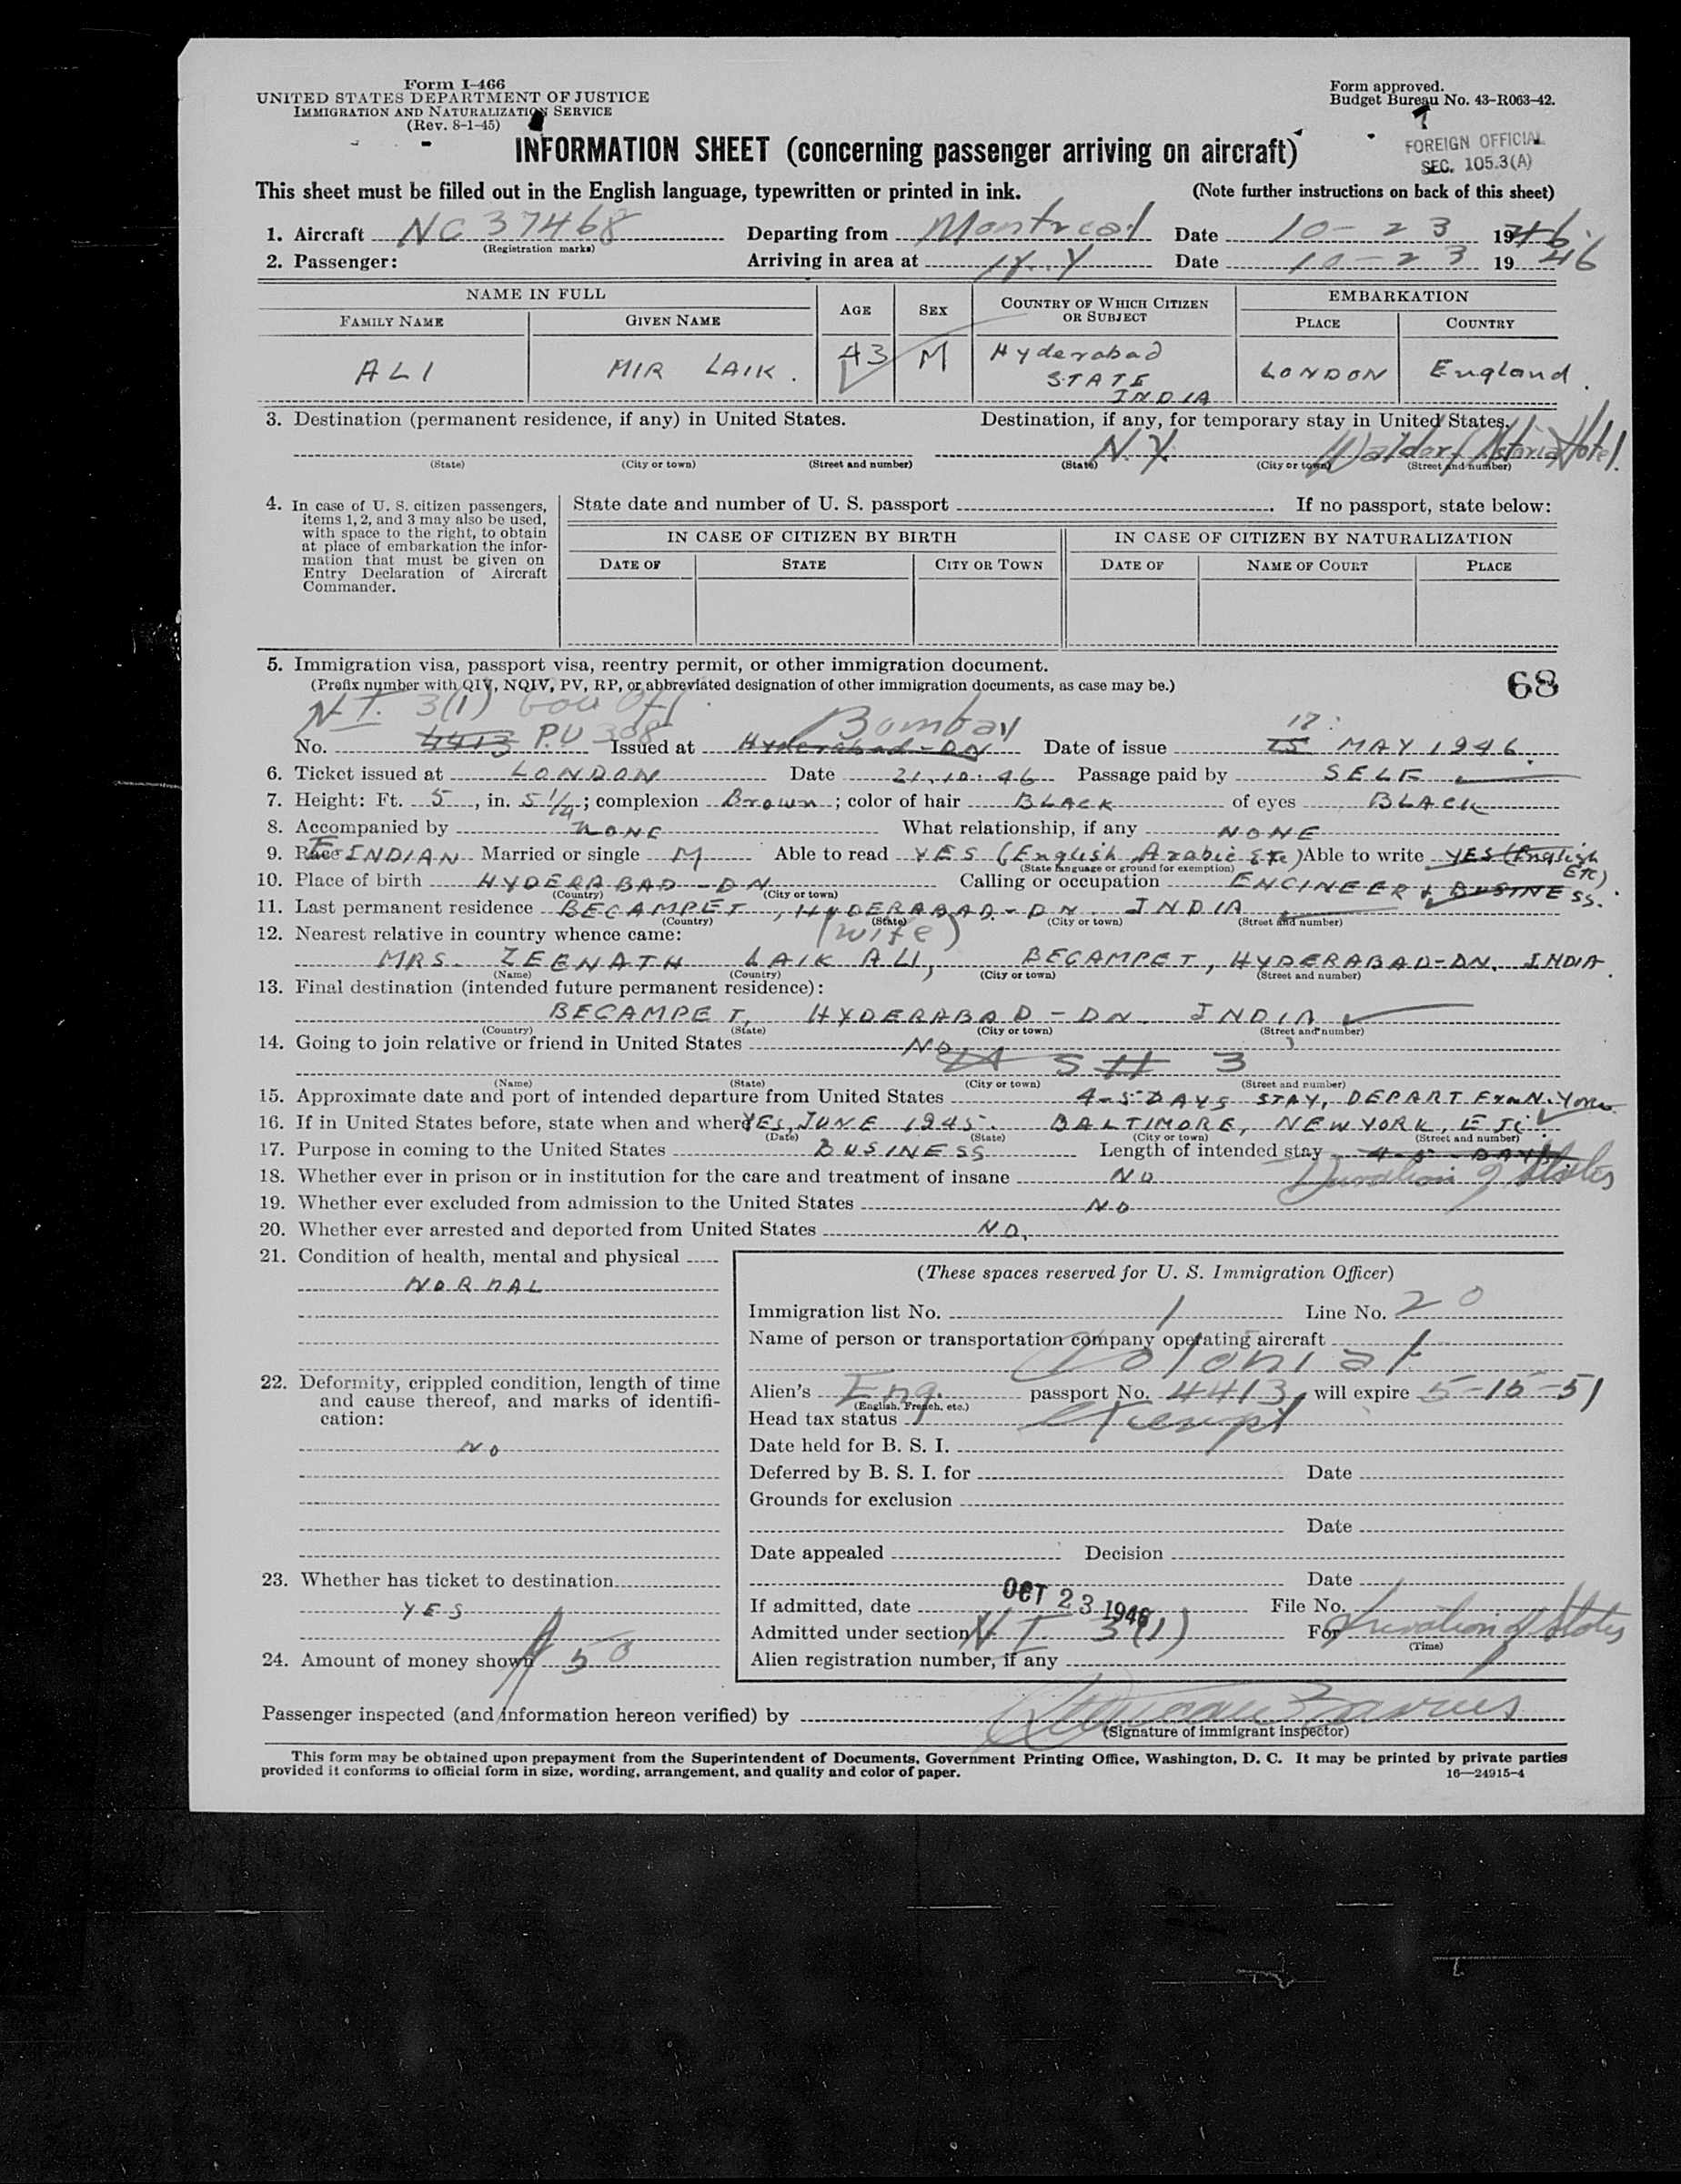 Form I-466
UNITED STATES DEPARTMENT OF JUSTICE
IMMIGRATION AND NATURALIZATION SERVICE
(Rev. 8-1-45)
Form approved.
Budget Bureau No. 43-R063-42.
INFORMATION SHEET (concerning passenger arriving on aircraft)
FOREIGN OFFICIAL
SEC. 105.3(A)
This sheet must be filled out in the English language, typewritten or printed in ink. (Note further instructions on back of this sheet)
1. Aircraft NC 37468 Departing from Montreal Date 10-23 1946
(Registration marks)
2. Passenger: Arriving in area at N.Y Date 10-23 1946
NAME IN FULL AGE SEX COUNTRY OF WHICH CITIZEN OR SUBJECT EMBARKATION
FAMILY NAME GIVEN NAME PLACE COUNTRY
ALI MIR LAIK. 43 M Hyderabad STATE INDIA LONDON England.
3. Destination (permanent residence, if any) in United States. Destination, if any, for temporary stay in United States.
N.Y. Waldorf Astoria Hotel.
(State) (City or town) (Street and number) (State) (City or town) (Street and number)
4. In case of U. S. citizen passengers, items 1, 2, and 3 may also be used, with space to the right, to obtain at place of embarkation the information that must be given on Entry Declaration of Aircraft Commander.
State date and number of U. S. passport . If no passport, state below:
IN CASE OF CITIZEN BY BIRTH IN CASE OF CITIZEN BY NATURALIZATION
DATE OF STATE CITY OR TOWN DATE OF NAME OF COURT PLACE
5. Immigration visa, passport visa, reentry permit, or other immigration document.
(Prefix number with QIV, NQIV, PV, RP, or abbreviated designation of other immigration documents, as case may be.)
68
NI 3(1) Gov Off
No. 4413 PV 308 Issued at Hyderabad-DN Bombay Date of issue 15 17 MAY 1946.
6. Ticket issued at LONDON Date 21.10.46 Passage paid by SELF
7. Height: Ft. 5, in. 5 1/4; complexion Brown; color of hair BLACK of eyes BLACK
8. Accompanied by NONE What relationship, if any NONE
9. Race E INDIAN Married or single M Able to read YES (English, Arabic Etc) Able to write YES (English ETC)
(State language or ground for exemption)
10. Place of birth HYDERABAD-DN Calling or occupation ENGINEER & BUSINESS.
(Country) (City or town)
11. Last permanent residence BEGAMPET, HYDERABAD-DN. INDIA
(Country) (State) (City or town) (Street and number)
12. Nearest relative in country whence came: (wife)
MRS. ZEENATH LAIK ALI, BEGAMPET, HYDERABAD-DN. INDIA.
(Name) (Country) (City or town) (Street and number)
13. Final destination (intended future permanent residence):
BEGAMPET, HYDERABAD-DN. INDIA
(Country) (State) (City or town) (Street and number)
14. Going to join relative or friend in United States NO
5 H 3
(Name) (State) (City or town) (Street and number)
15. Approximate date and port of intended departure from United States 4-5 DAYS STAY, DEPART From N.York
16. If in United States before, state when and where YES, JUNE 1945. BALTIMORE, NEW YORK, ETC.
(Date) (State) (City or town) (Street and number)
17. Purpose in coming to the United States BUSINESS Length of intended stay 4-5 DAYS
Duration of Status
18. Whether ever in prison or in institution for the care and treatment of insane NO
19. Whether ever excluded from admission to the United States NO
20. Whether ever arrested and deported from United States NO.
21. Condition of health, mental and physical
NORMAL
22. Deformity, crippled condition, length of time and cause thereof, and marks of identification:
NO
23. Whether has ticket to destination
YES
24. Amount of money shown $50
(These spaces reserved for U. S. Immigration Officer)
Immigration list No. 1 Line No. 20
Name of person or transportation company operating aircraft
Colonial
Alien's Eng. passport No. 4413, will expire 5-15-51
(English, French, etc.)
Head tax status Exempt
Date held for B. S. I.
Deferred by B. S. I. for Date
Grounds for exclusion
Date
Date appealed Decision
Date
If admitted, date OCT 23 1946 File No.
Admitted under section NI 3(1) For Duration of Status
(Time)
Alien registration number, if any
Passenger inspected (and information hereon verified) by
(Signature of immigrant inspector)
This form may be obtained upon prepayment from the Superintendent of Documents, Government Printing Office, Washington, D. C. It may be printed by private parties
provided it conforms to official form in size, wording, arrangement, and quality and color of paper. 16—24915-4